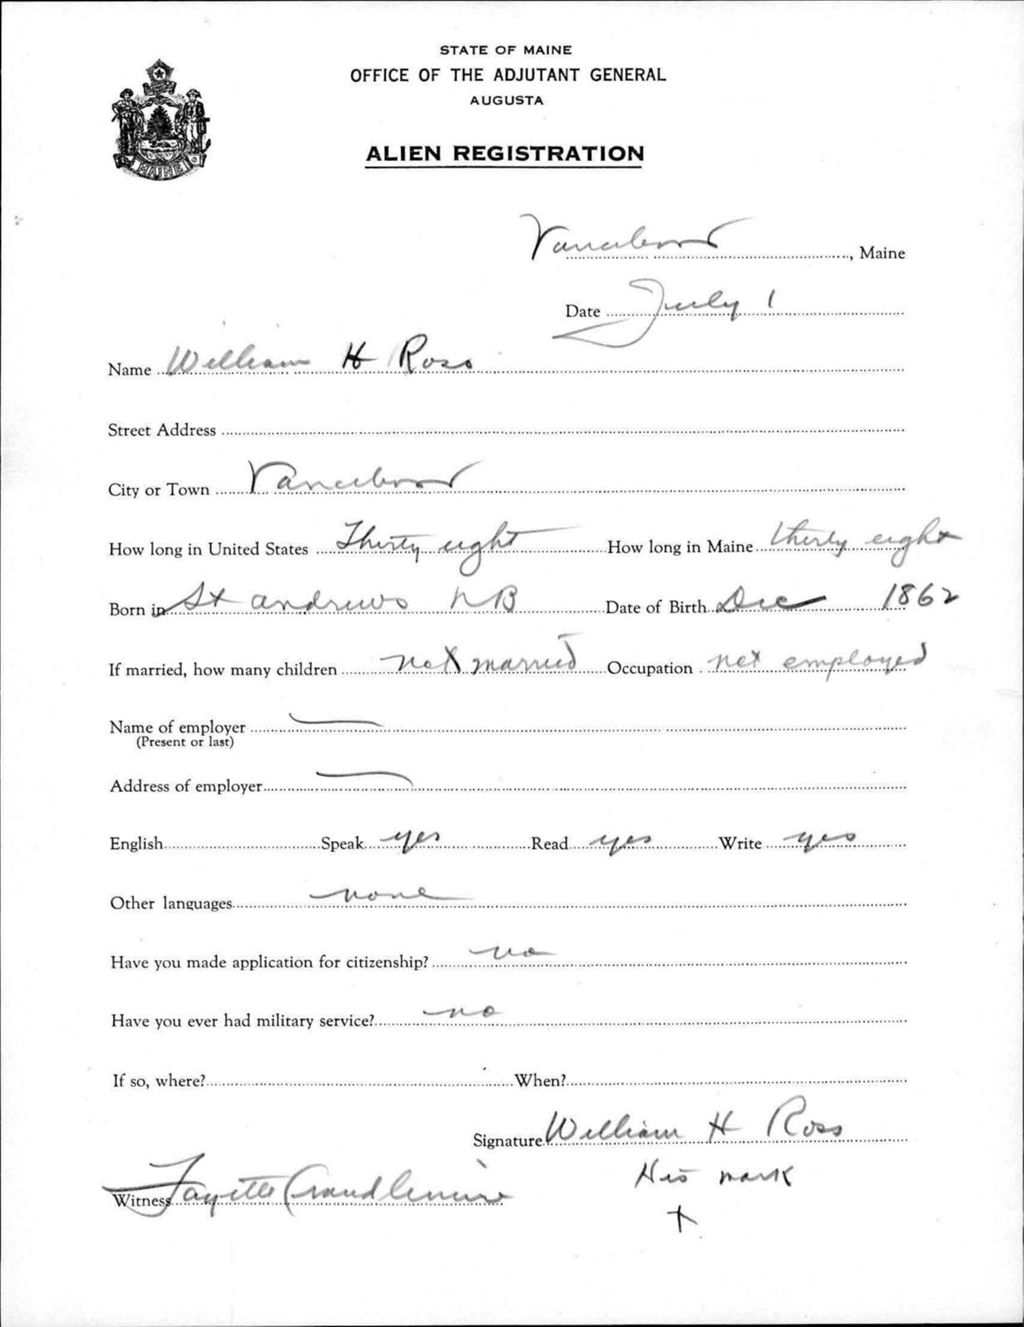 STATE OF MAINE
OFFICE OF THE ADJUTANT GENERAL
AUGUSTA
MAINE
ALIEN REGISTRATION
Vanceboro, Maine
Date July 1
Name William H Ross
Street Address
City or Town Vanceboro
How long in United States Thirty eight How long in Maine thirty eight
Born in St andrews NB Date of Birth Dec 1862
If married, how many children not married Occupation not employed
Name of employer
(Present or last)
Address of employer
English Speak yes Read yes Write yes
Other languages none
Have you made application for citizenship? no
Have you ever had military service? no
If so, where? When?
Signature William H Ross
His mark
Witness Fayette Crandlemire
x